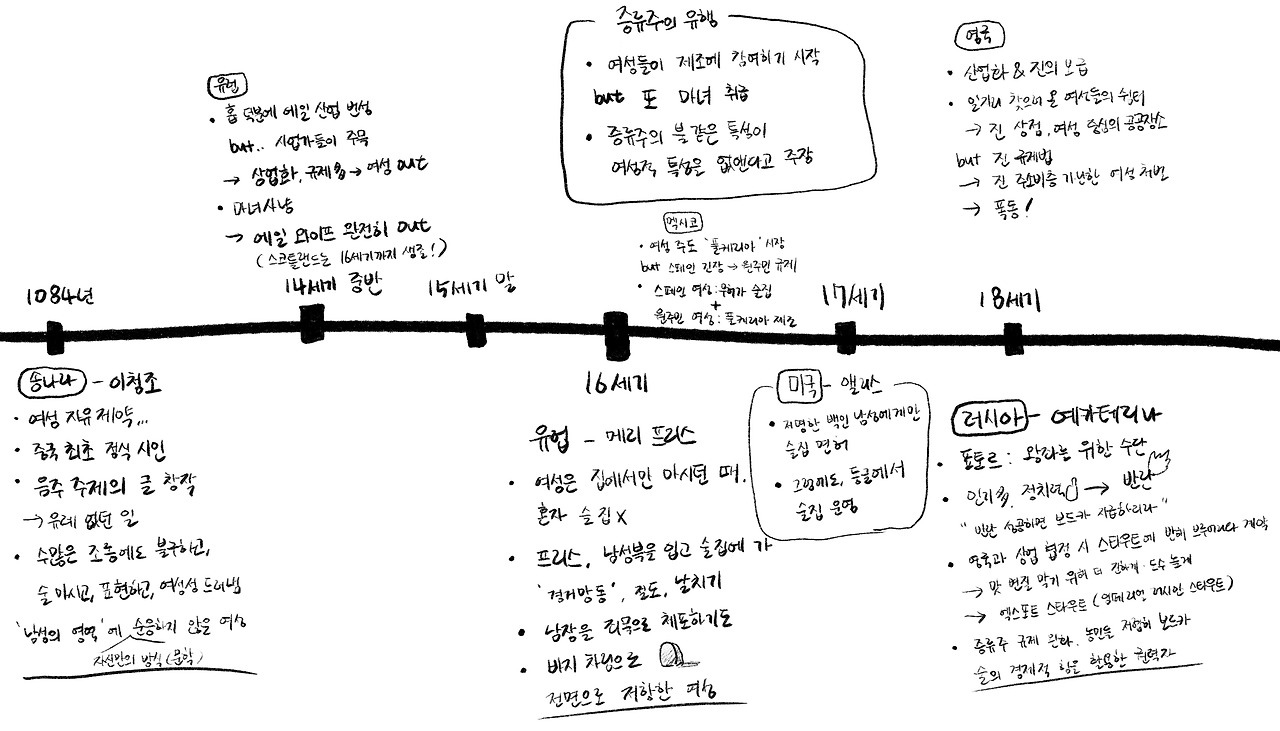 유럽
• 홉 덕분에 에일 산업 번성
but.. 사업가들이 주목
→ 상업화, 규제多 → 여성 out
• 마녀사냥
→ 에일 와이프 완전히 out
(스코틀랜드는 16세기까지 생존!)
증류주의 유행
• 여성들이 제조에 참여하기 시작
but 또 마녀 취급
• 증류주의 불 같은 특성이
여성적 특성을 없앤다고 주장
영국
• 산업화 & 진의 보급
• 일거리 찾으러 온 여성들의 쉼터
→ 진 상점, 여성 중심의 공공장소
but 진 규제법
→ 진 주소비층 가난한 여성 처벌
→ 폭동!
멕시코
• 여성 주도 '풀케리아' 시장
but 스페인 긴장 → 원주민 규제
• 스페인 여성: 무허가 술집
+
원주민 여성: 풀케리아 제조
1084년
14세기 중반
15세기 말
16세기
17세기
18세기
송나라 - 이청조
• 여성 자유 제약...
• 중국 최초 정식 시인
• 음주 주제의 글 창작
→ 유례 없던 일
• 수많은 조롱에도 불구하고,
술 마시고, 표현하고, 여성성 드러냄
'남성의 영역'에 순응하지 않은 여성
자신만의 방식(문학)
유럽 - 메리 프리스
• 여성은 집에서만 마시던 때,
혼자 술집 X
• 프리스, 남성복을 입고 술집에 가
'경거망동', 절도, 날치기
• 남장을 죄목으로 체포하기도
• 바지 차림으로
전면으로 저항한 여성
미국 - 앨리스
• 저명한 백인 남성에게만
술집 면허
• 그럼에도, 동굴에서
술집 운영
러시아 - 예카테리나
• 표토르: 왕좌는 위한 수단
• 인기多, 정치력 → 반란
"반란 성공하면 보드카 지급하리라"
• 영국과 상업 협정 시 스타우트에 반해 브루어리와 계약
→ 맛 변질 막기 위해 더 진하게·도수 높게
→ 엑스포트 스타우트 (임페리얼 러시안 스타우트)
• 증류주 규제 완화, 농민을 저렴히 보드카
술의 경제적 힘을 활용한 권력자